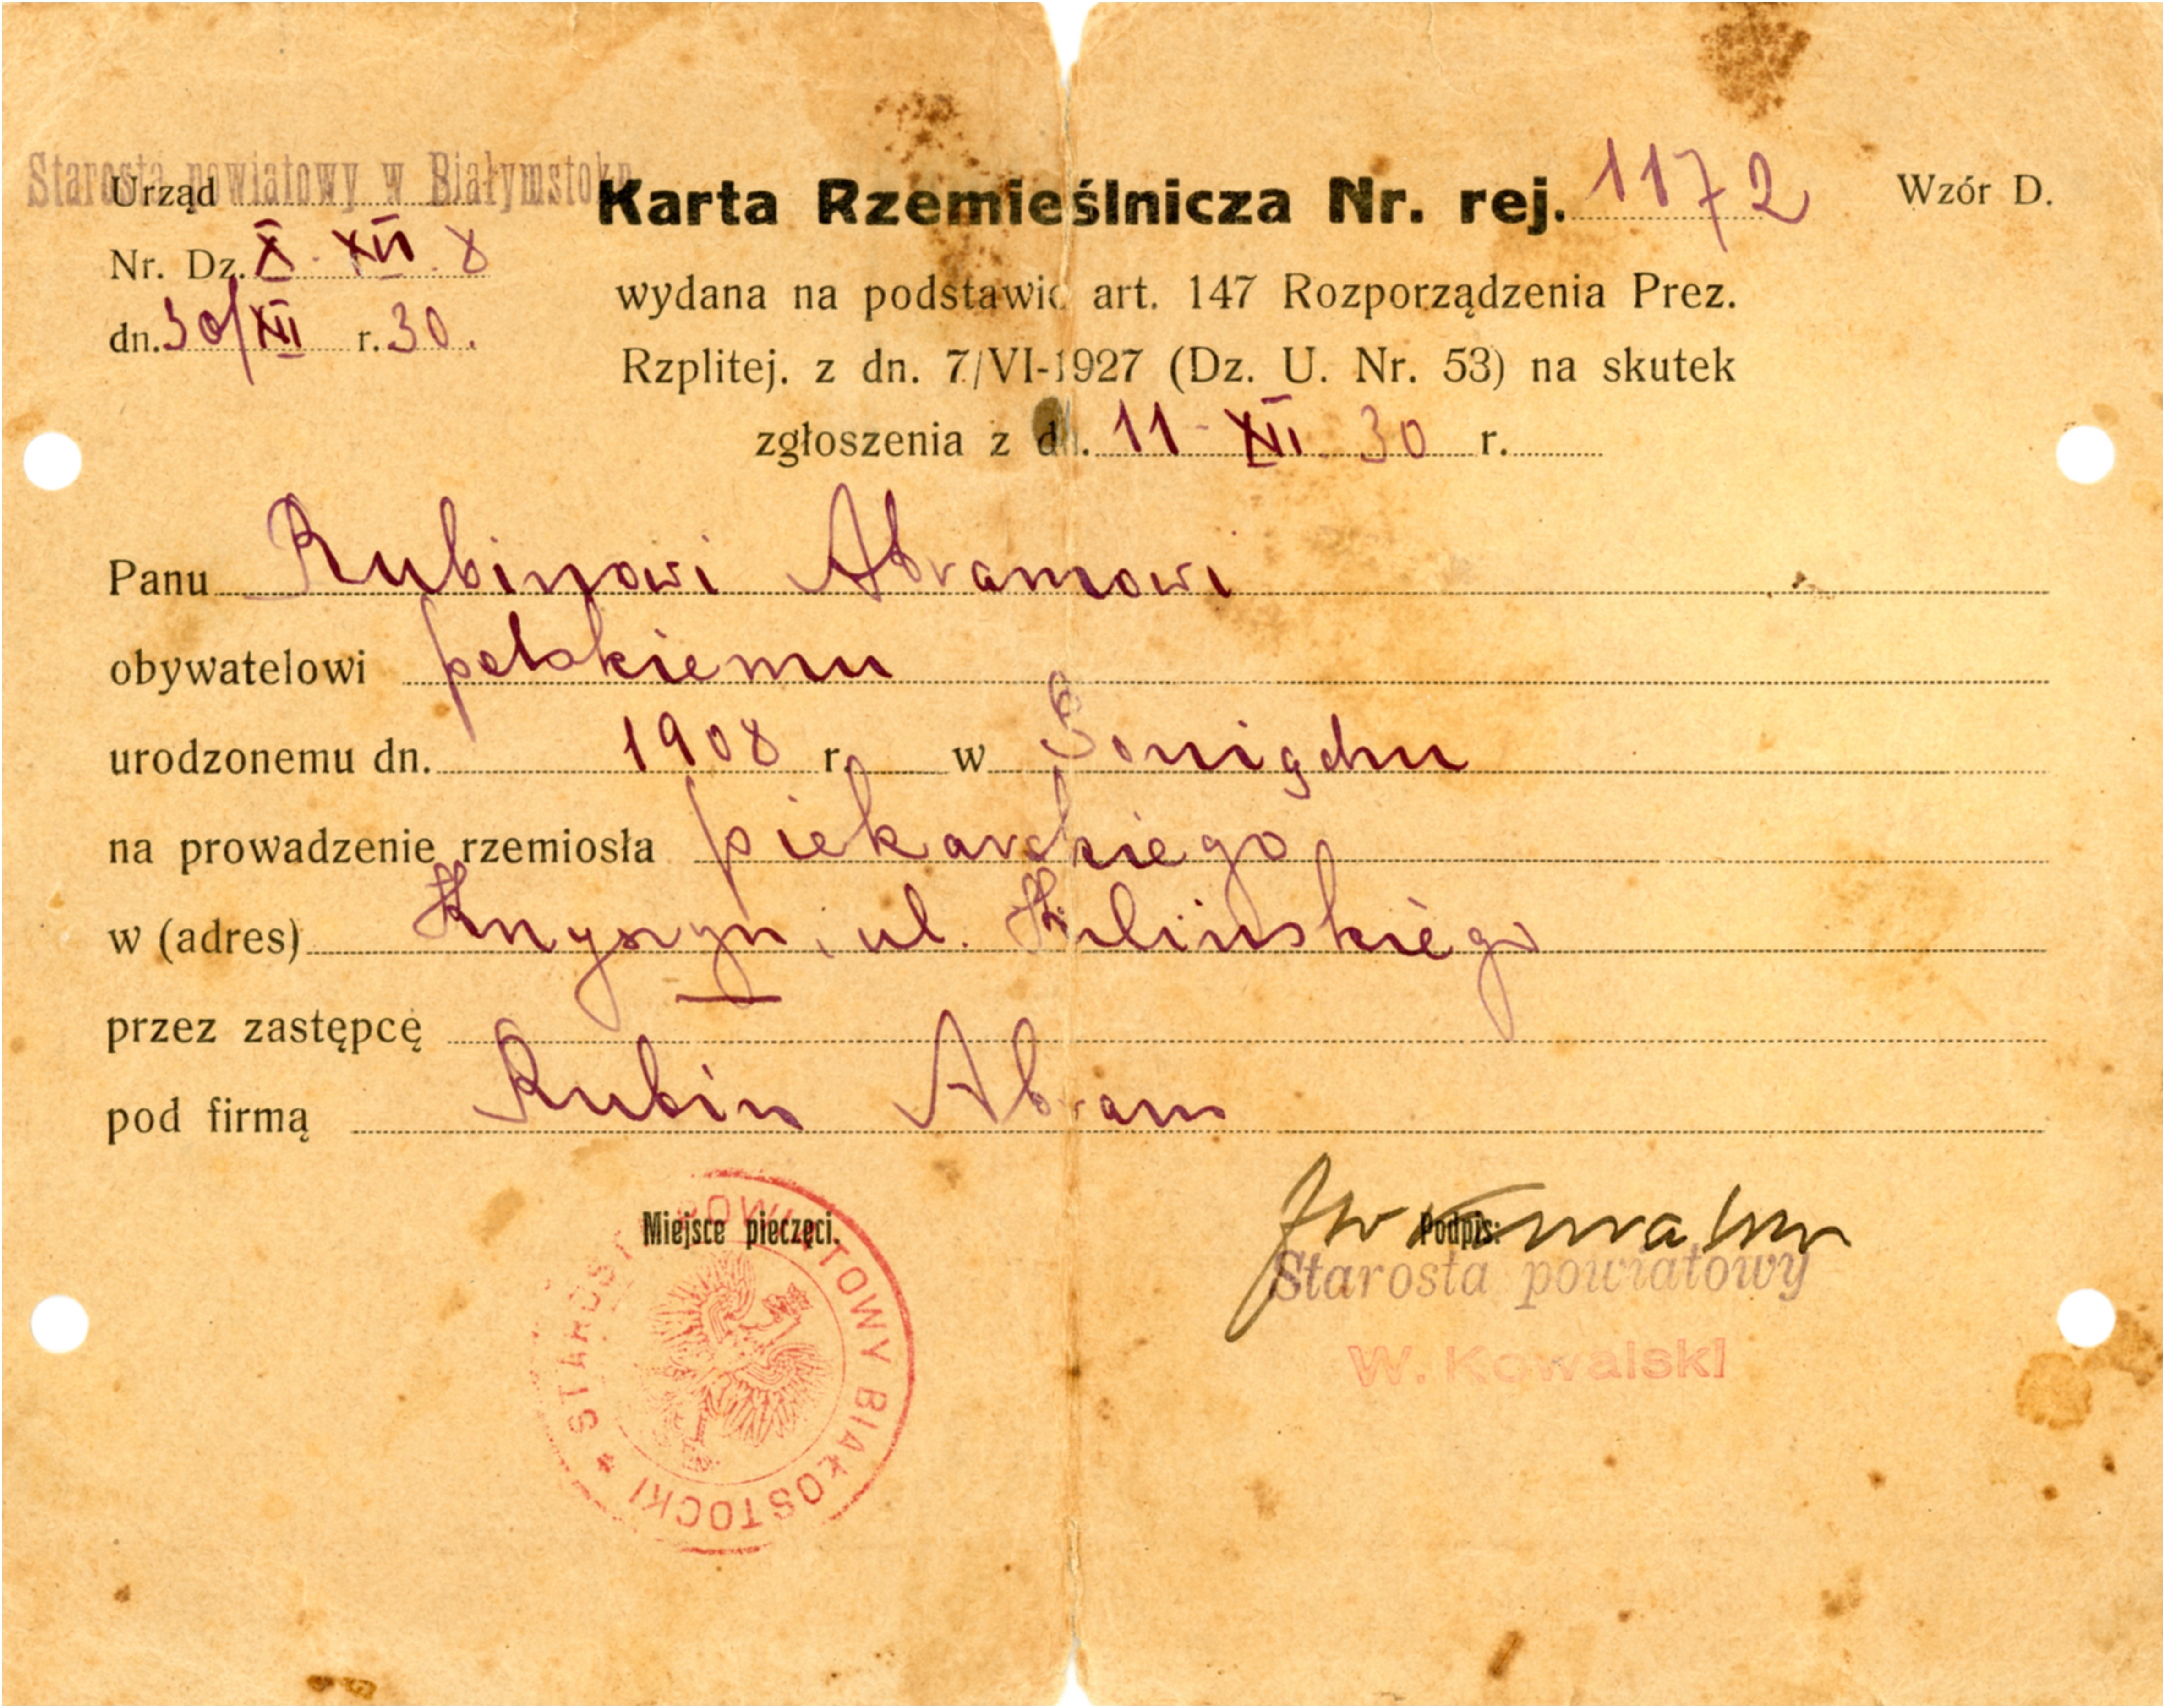 Starosta powiatowy w Białymstoku
Urząd
Karta Rzemieślnicza Nr. rej. 1172
Wzór D.
Nr. Dz. X - XII. 8
dn. 30/XII r. 30.
wydana na podstawie art. 147 Rozporządzenia Prez.
Rzplitej. z dn. 7/VI-1927 (Dz. U. Nr. 53) na skutek
zgłoszenia z dn. 11 - XII. 30 r.
Panu Rubinowi Abramowi
obywatelowi polskiemu
urodzonemu dn. 1908 r. w Goniądzu
na prowadzenie rzemiosła piekarskiego
w (adres) Knyszyn, ul. Kilińskiego
przez zastępcę —
pod firmą Rubin Abram
Miejsce pieczęci.
Podpis:
STAROSTA POWIATOWY BIAŁOSTOCKI
Starosta powiatowy
W. Kowalski